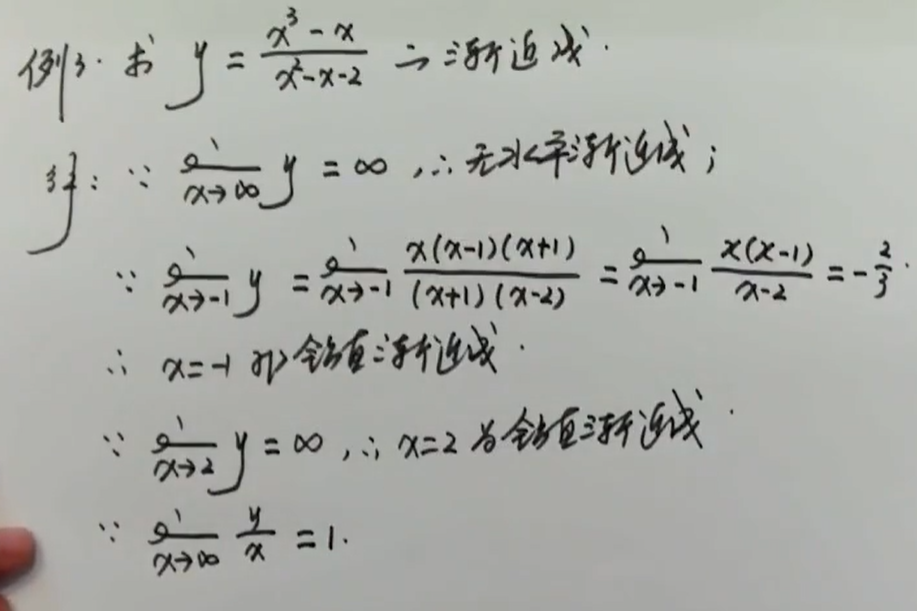 例3. 求 y = (x³ - x)/(x² - x - 2) 之渐近线.
解: ∵ lim_{x→∞} y = ∞, ∴ 无水平渐近线;
∵ lim_{x→-1} y = lim_{x→-1} x(x-1)(x+1)/((x+1)(x-2)) = lim_{x→-1} x(x-1)/(x-2) = -2/3.
∴ x=-1 非铅直渐近线.
∵ lim_{x→2} y = ∞, ∴ x=2 为铅直渐近线.
∵ lim_{x→∞} y/x = 1.